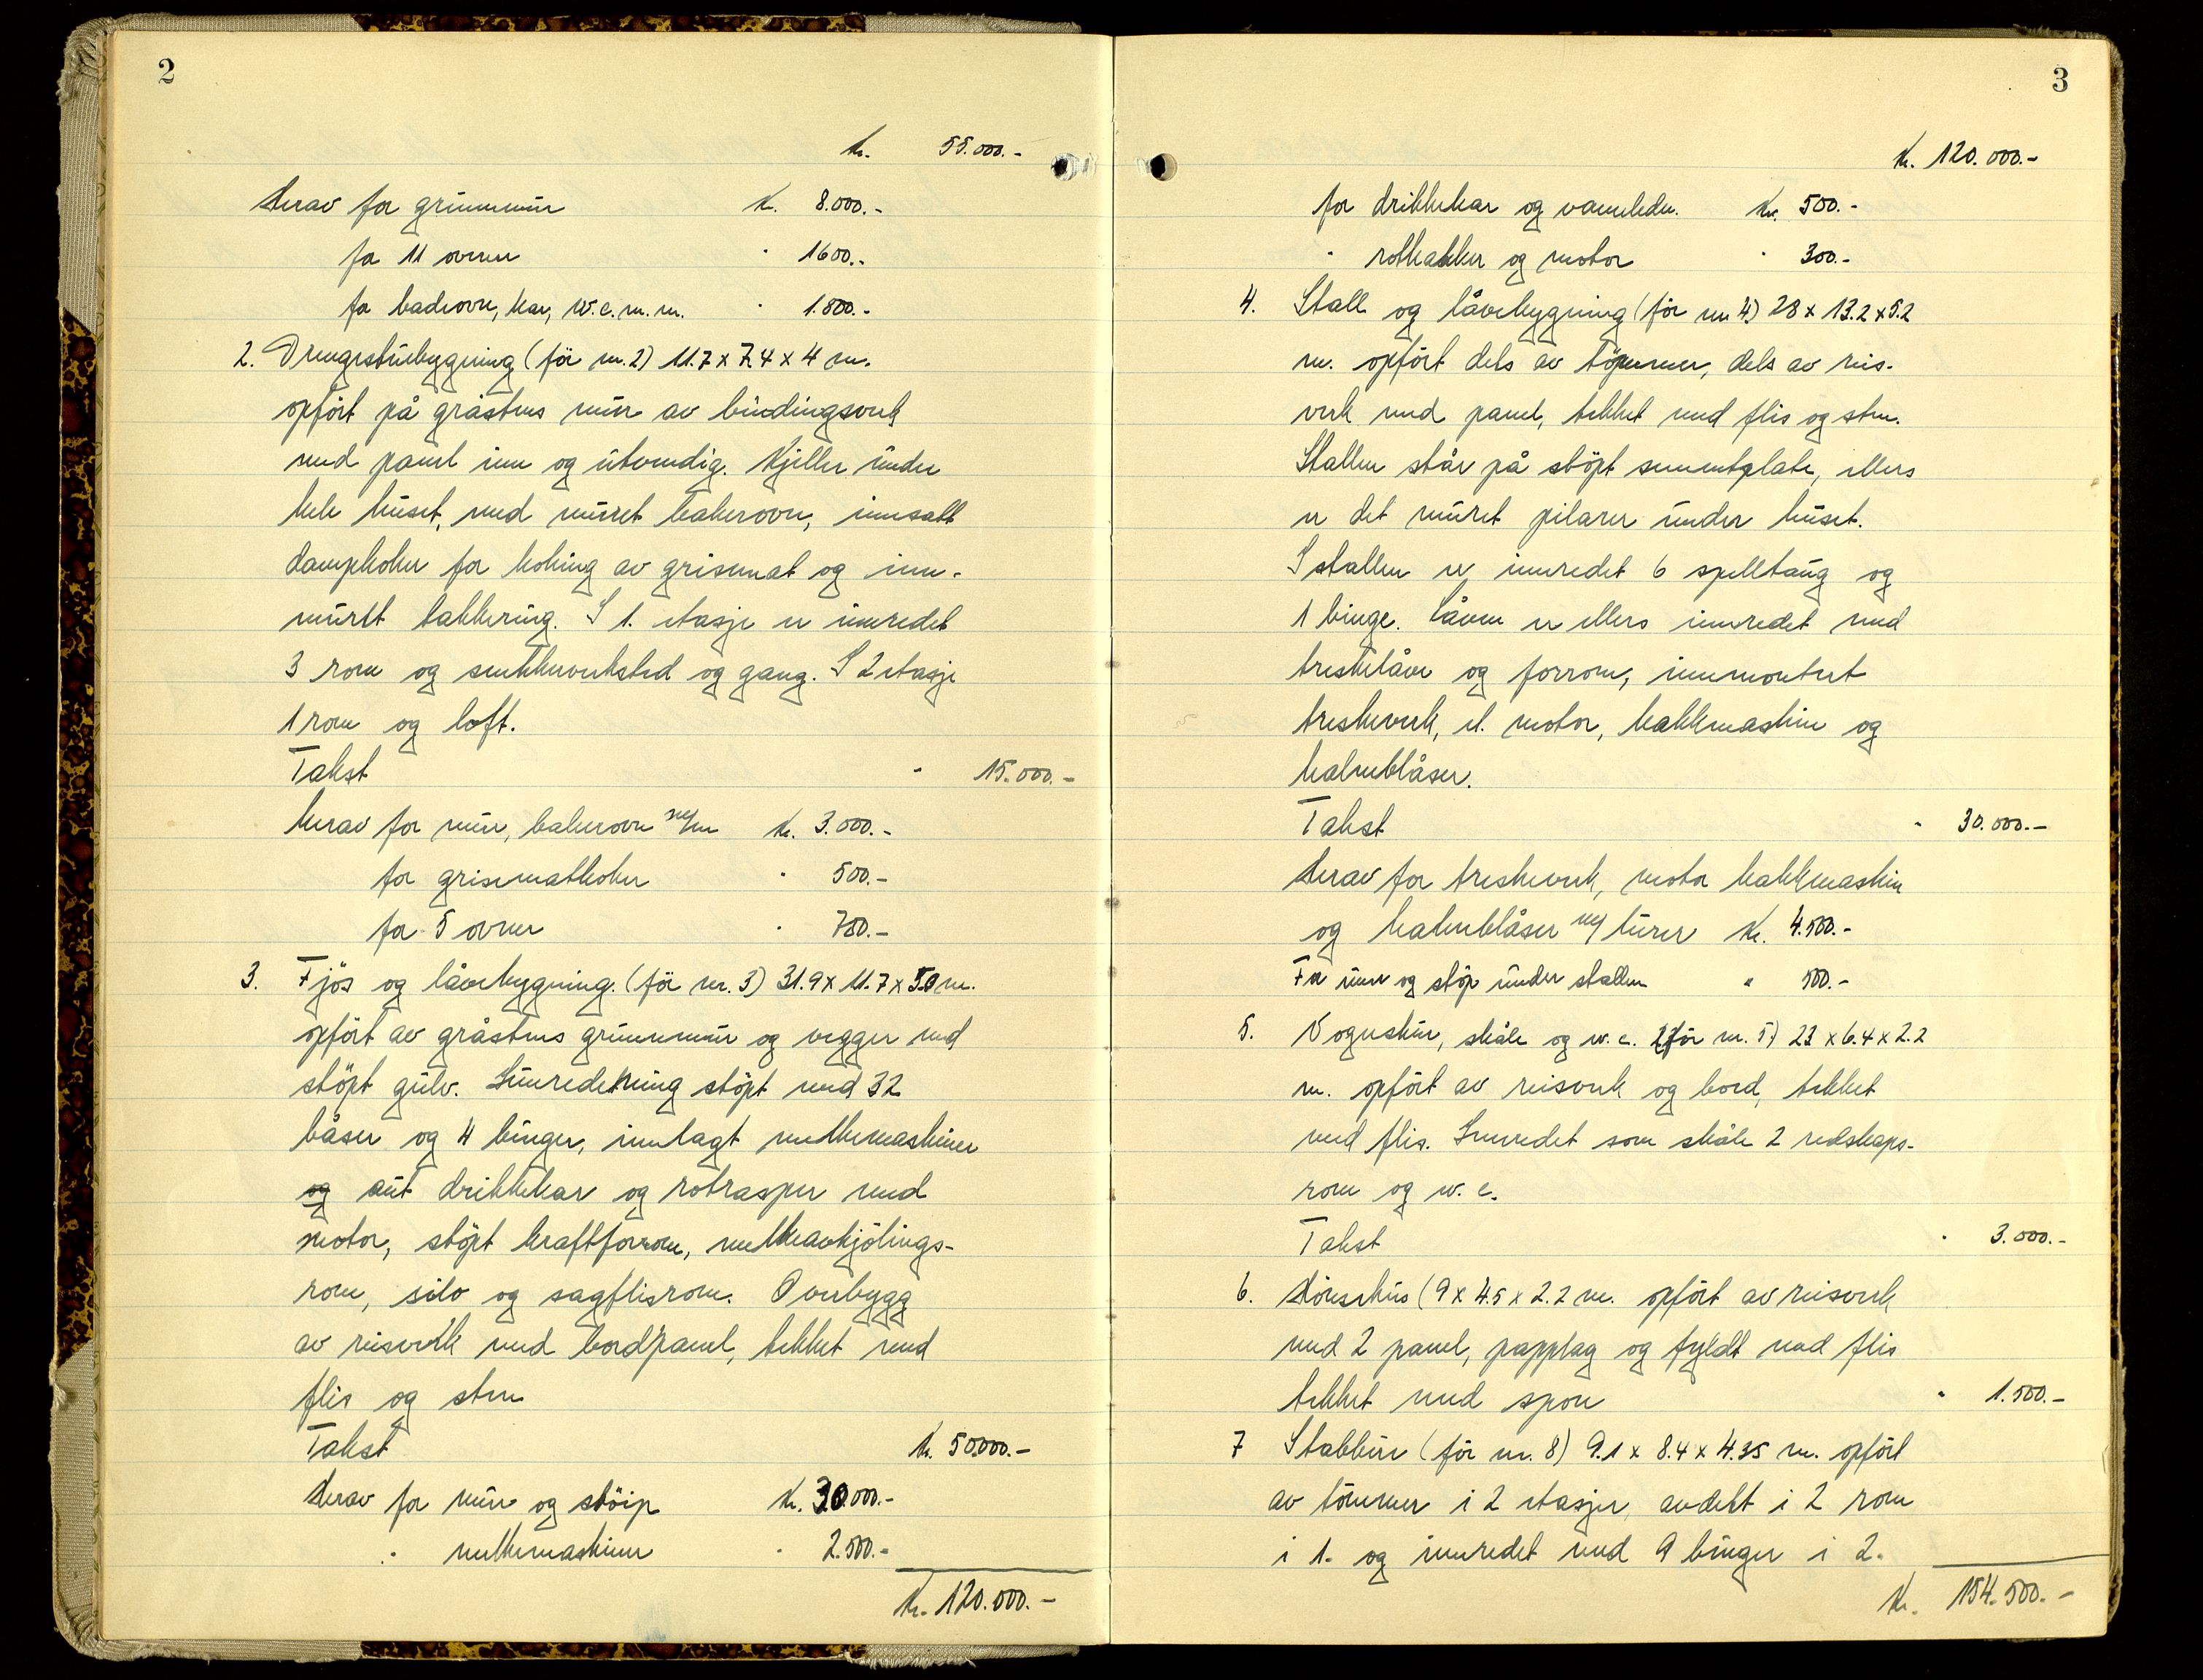 2
Kr. 55.000.-
Herav for grunnmur Kr. 8.000.-
for 11 ovner " 1600.-
for badeovn, kar, w.c. m.m. " 1.800.-
2. Drengestubygning (før nr. 2) 11.7 x 7.4 x 4 m.
opført på gråstens mur av bindingsverk
med panel inn og utvendig. Kjeller under
hele huset, med muret bakerovn, innsatt
dampkoker for koking av grisemat og inn-
muret takkering. I 1. etasje er innredet
3 rom og snekkerverksted og gang. I 2 etasje
1 rom og loft.
Takst " 15.000.-
herav for mur, bakerovn m/m Kr. 3.000.-
for grisematkoker " 500.-
for 5 ovner " 700.-
3. Fjøs og låvebygning. (før nr. 3) 31.9 x 11.7 x 5.0 m.
opført av gråstens grunnmur og vegger med
støpt gulv. Innredetning støpt med 32
båser og 4 binger, innlagt melkemaskiner
og aut drikkekar og rotrasper med
motor, støpt kraftforrom, melkeavkjølings-
rom, silo og sagflisrom. Overbygg
av reisverk med bordpanel, tekket med
flis og sten
Takst Kr. 50.000.-
Herav for mur og støip Kr. 30.000.-
" melkemaskiner " 2.500.-
Kr. 120.000.-
3
Kr. 120.000.-
for drikkekar og vannledn. Kr. 500.-
" rothakker og motor " 300.-
4. Stall og låvebygning (før nr. 4.) 28 x 13.2 x 5.2
m. opført dels av tømmer, dels av reis-
verk med panel, tekket med flis og sten.
Stallen står på støpt sementplate, ellers
er det muret pilarer under huset.
I stallen er innredet 6 spelltaug og
1 binge. Låven er ellers innredet med
treskelåve og forrom, innmontert
treskeverk, el. motor, hakkmaskin og
halmblåser.
Takst " 30.000.-
Herav for treskeverk, motor hakkmaskin
og halmblåser m/ turer Kr. 4.500.-
For mur og støp under stallen " 500.-
5. Vognskur, skåle og w.c. (før nr. 5) 23 x 6.4 x 2.2
m. opført av reisverk og bord, tekket
med flis. Innredet som skåle 2 redskaps-
rom og w.c.
Takst " 3.000.-
6. Hønsehus (9 x 4.5 x 2.2 m. opført av reisverk
med 2 panel, papplag og fyldt med flis
tekket med spon " 1.500.-
7 Stabbur (før nr. 8) 9.1 x 8.4 x 4.35 m. opført
av tømmer i 2 etasjer, avdelt i 2 rom
i 1. og innredet med 9 binger i 2.
Kr. 154.500.-